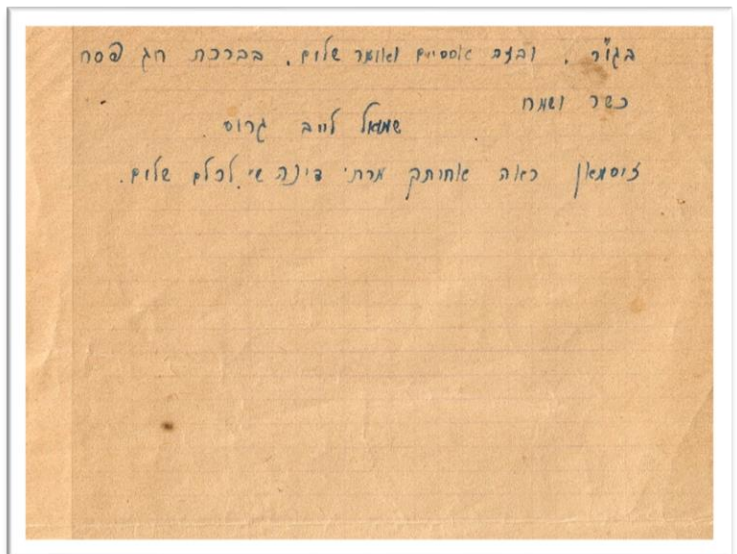 בגו"ר . ובזה אסיים ואומר שלום. בברכת חג פסח
כשר ושמח
שמואל לייב גרוס
זוסמאן ראה אחותך מרת דינה שי' לכלם שלום.